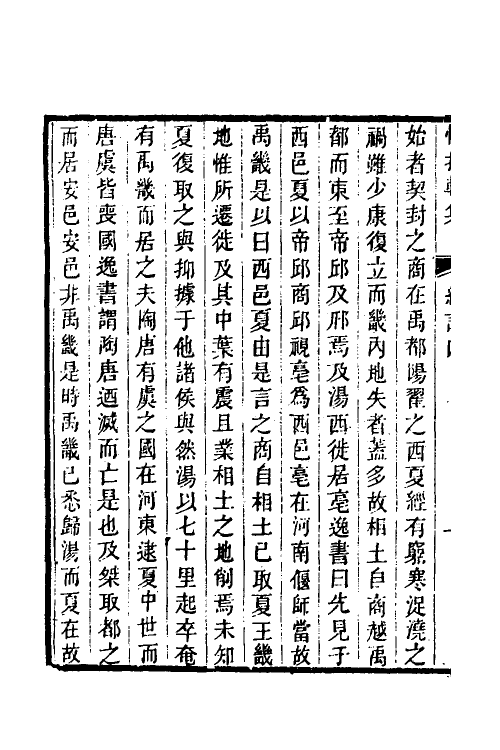 始者契封之商在禹都陽翟之西夏經有窮寒浞澆之
禍雖少康復立而畿內地失者蓋多故相土自商越禹
都而東至帝邱及邢焉及湯西徙居亳逸書曰先見于
西邑夏以帝邱商邱視亳為西邑亳在河南偃師當故
禹畿是以曰西邑夏由是言之商自相土已取夏王畿
地惟所遷徙及其中葉有震且業相土之地削焉未知
夏復取之與抑據于他諸侯與然湯以七十里起卒奄
有禹畿而居之夫陶唐有虞之國在河東逮夏中世而
唐虞皆喪國逸書謂陶唐迺滅而亡是也及桀取都之
而居安邑安邑非禹畿是時禹畿已悉歸湯而夏在故